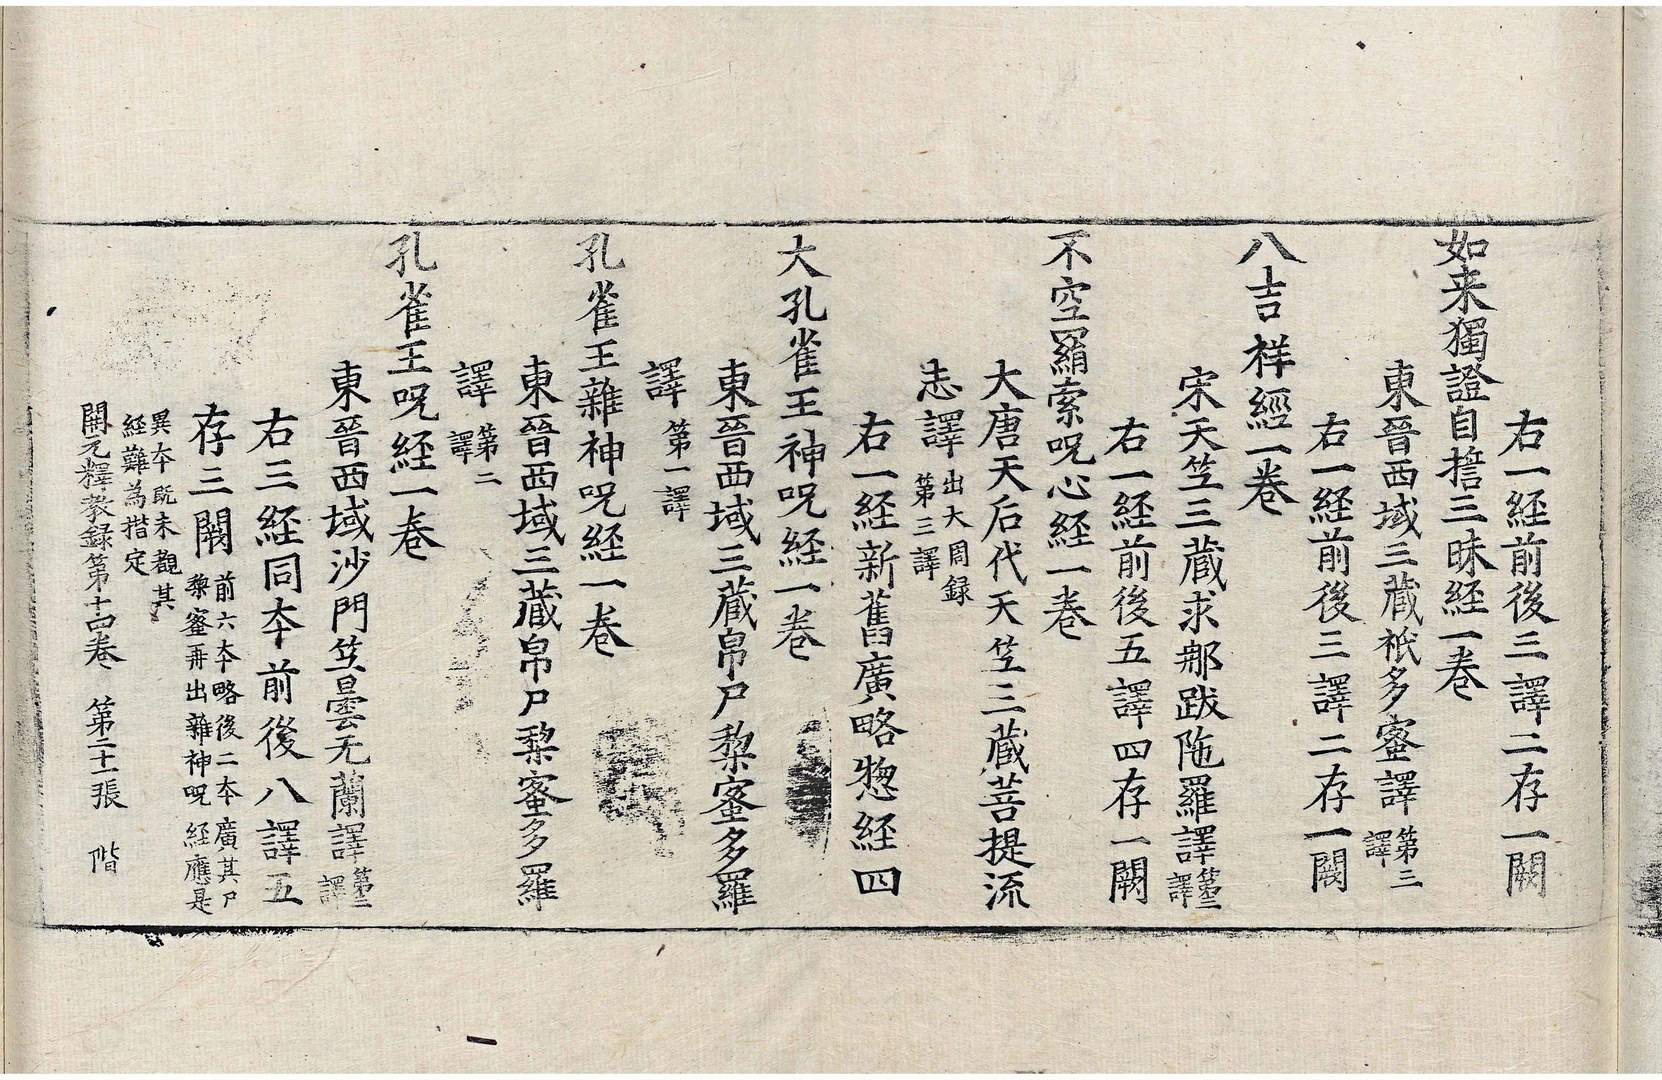 右一経前後三譯二存一闕
如来獨證自擔三昧経一巻
東晉西域三蔵祇多蜜譯第三譯
右一経前後三譯二存一闕
八吉祥經一巻
宋天竺三蔵求那跋陁羅譯第三譯
右一経前後五譯四存一闕
不空羂索呪心経一巻
大唐天后代天竺三蔵菩提流
志譯出大周録第三譯
右一経新舊廣略惣経四
大孔雀王神呪経一巻
東晉西域三蔵帛尸黎蜜多羅
譯第一譯
孔雀王雜神呪経一巻
東晉西域三蔵帛尸黎蜜多羅
譯第二譯
孔雀王呪経一巻
東晉西域沙門竺曇无蘭譯第三譯
右三経同夲前後八譯五
存三闕前六夲略後二夲廣其尸黎蜜再出雜神呪経應是
異夲既未覩其経難為揩定
開元釋教録第十四巻　第二十一張　階